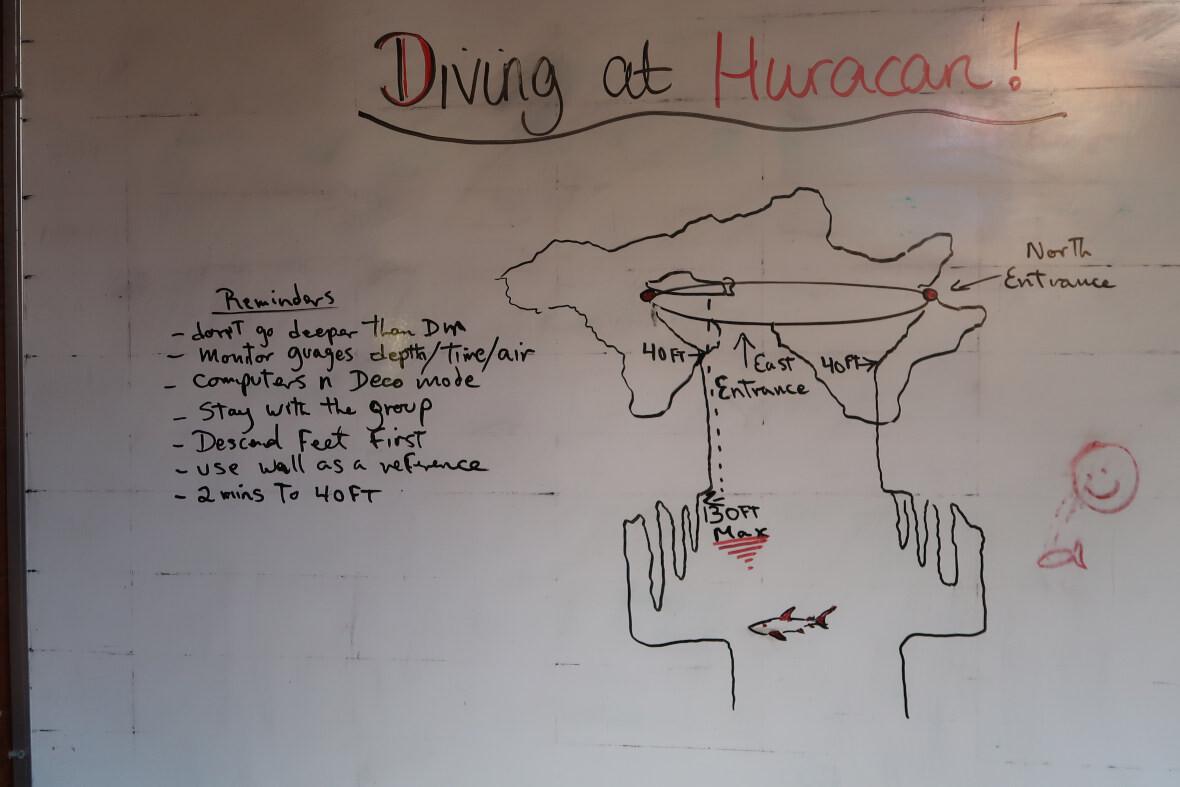 Diving at Huracan!
North
Entrance
Reminders
- don't go deeper than DM
- monitor guages depth/Time/air
- computers n Deco mode
- Stay with the group
- Descend Feet First
- use wall as a reference
- 2 mins To 40FT
40FT
East
Entrance
40FT
130FT
Max